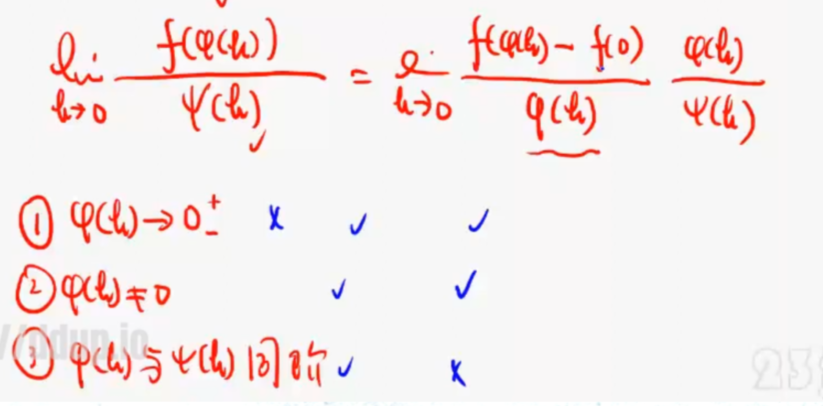 lim h→0 f(φ(h)) / ψ(h) = lim h→0 (f(φ(h)) - f(0)) / φ(h) φ(h) / ψ(h)
✓
① φ(h) → 0± × ✓ ✓
② φ(h) ≠ 0 ✓ ✓
③ φ(h) 与 ψ(h) 同阶 ✓ ×
ddup.io
235